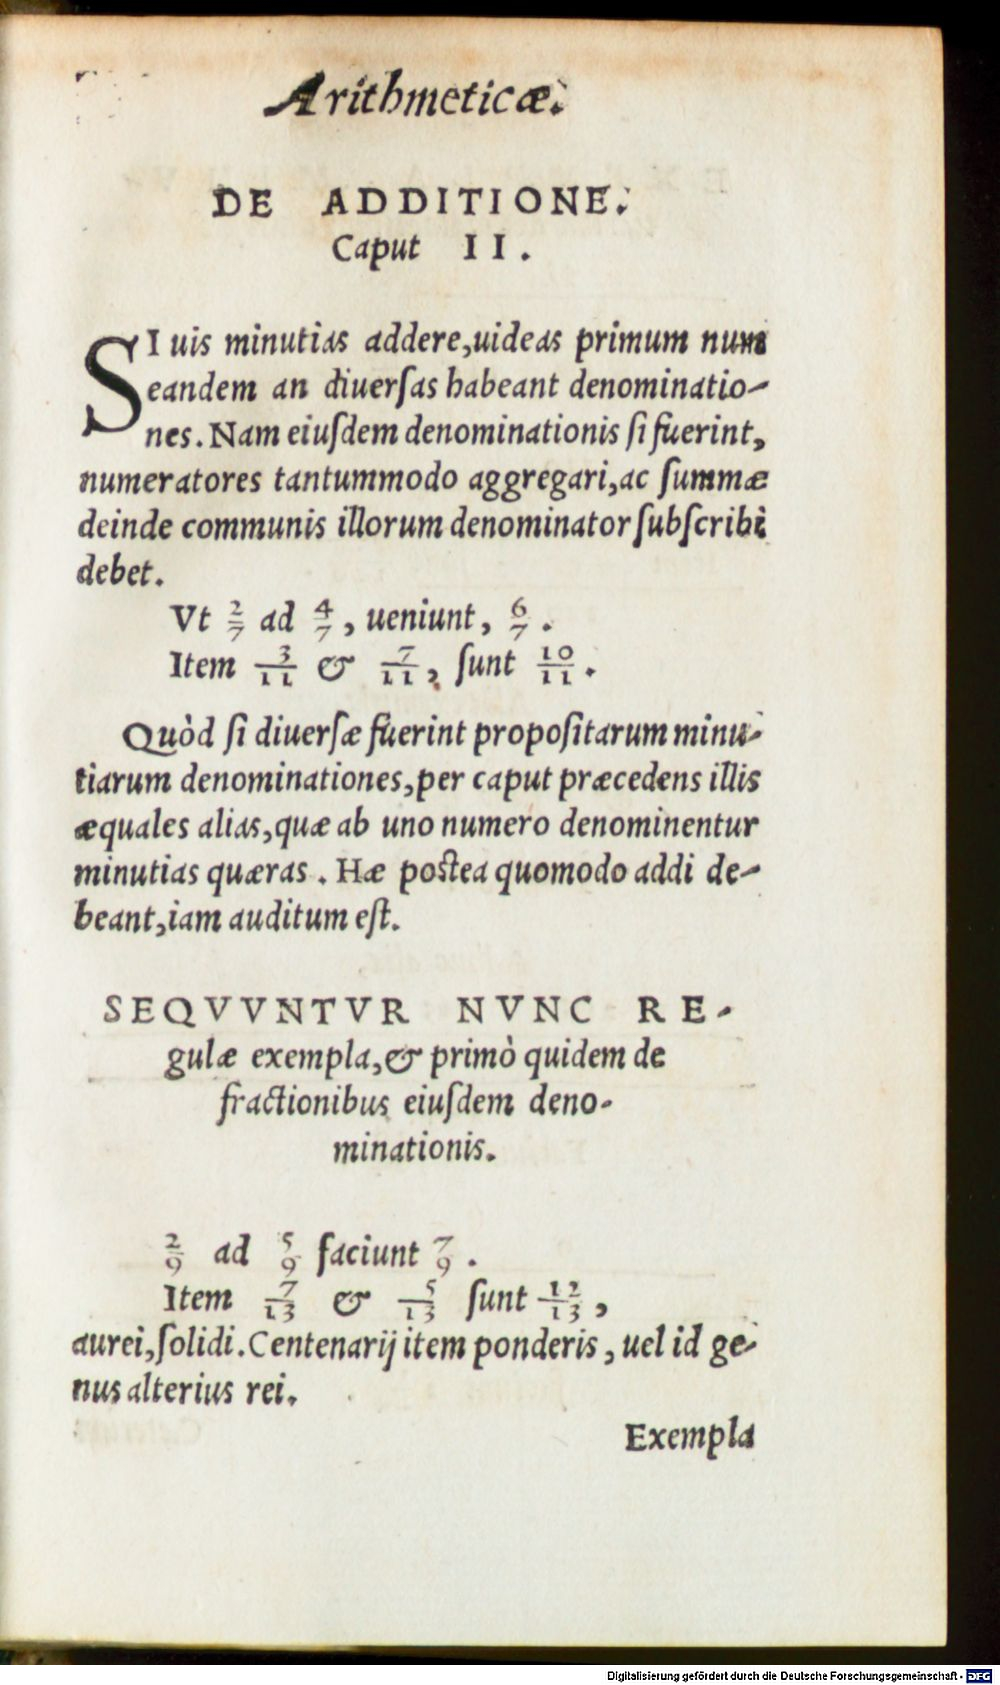 Arithmeticæ.
DE ADDITIONE.
Caput II.
SI uis minutias addere,uideas primum num
eandem an diuerſas habeant denominatio-
nes. Nam eiuſdem denominationis ſi fuerint,
numeratores tantummodo aggregari,ac ſummæ
deinde communis illorum denominator ſubſcribi
debet.
Vt 2/7 ad 4/7, ueniunt, 6/7.
Item 3/11 & 7/11, ſunt 10/11.
Quòd ſi diuerſæ fuerint propoſitarum minu-
tiarum denominationes,per caput præcedens illis
æquales alias,quæ ab uno numero denominentur
minutias quæras. Hæ postea quomodo addi de-
beant,iam auditum eſt.
SEQVVNTVR NVNC RE-
gulæ exempla,& primò quidem de
fractionibus eiuſdem deno-
minationis.
2/9 ad 5/9 faciunt 7/9.
Item 7/13 & 5/13 ſunt 12/13,
aurei,ſolidi. Centenarij item ponderis, uel id ge-
nus alterius rei.
Exempla
Digitalisierung gefördert durch die Deutsche Forschungsgemeinschaft - DFG